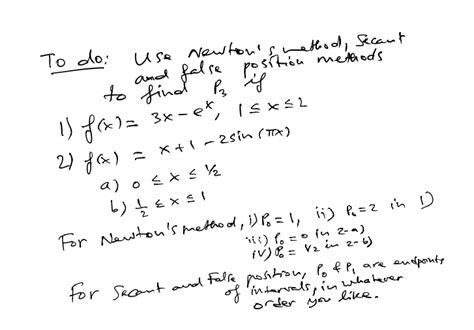 To do: Use Newton's method, Secant
and false position methods
to find P₃ if
1) f(x) = 3x - eˣ, 1 ≤ x ≤ 2
2) f(x) = x + 1 - 2sin(πx)
a) 0 ≤ x ≤ ½
b) ½ ≤ x ≤ 1
For Newton's method, i) P₀ = 1, ii) P₀ = 2 in 1)
iii) P₀ = 0 in 2-a)
iv) P₀ = ½ in 2-b)
For Secant and False position, P₀ & P₁ are endpoints
of intervals, in whatever
order you like.